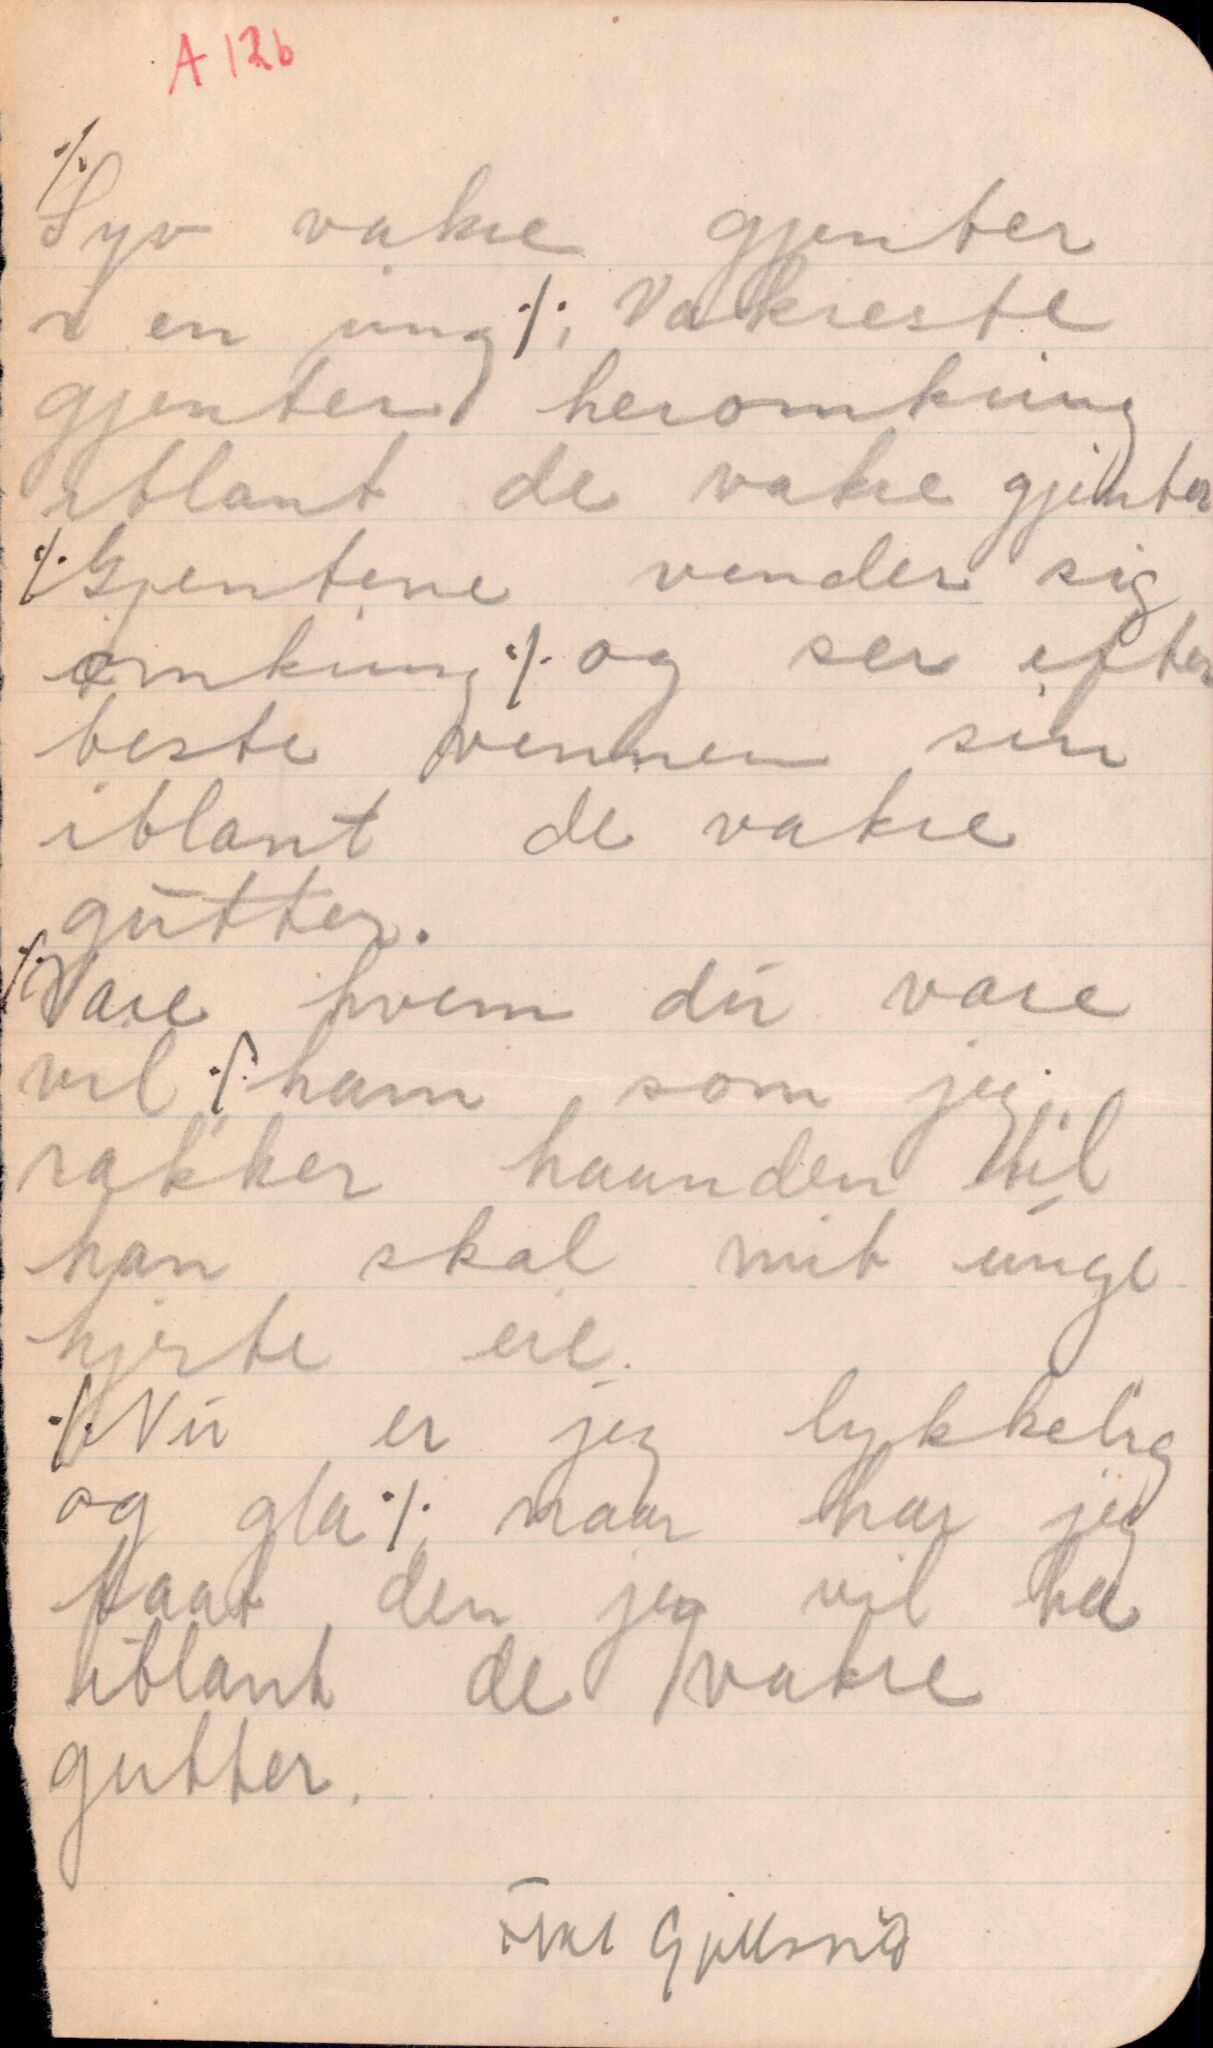 A 126
·/. Syv vakre gjenter
i en ring ·/., Vakreste
gjenter heromkring
iblant de vakre gjenter
·/. Gjentene vender sig
omkring ·/. og ser efter
beste vennen sin
iblant de vakre
gutter.
·/. Vare hvem du vare
vil ·/. ham som jeg
rakker haanden til
han skal mit unge
hjerte eie.
·/. Nu er jeg lykkelig
og gla ·/., naar har jeg
faat den jeg vil ha
iblant de vakre
gutter.